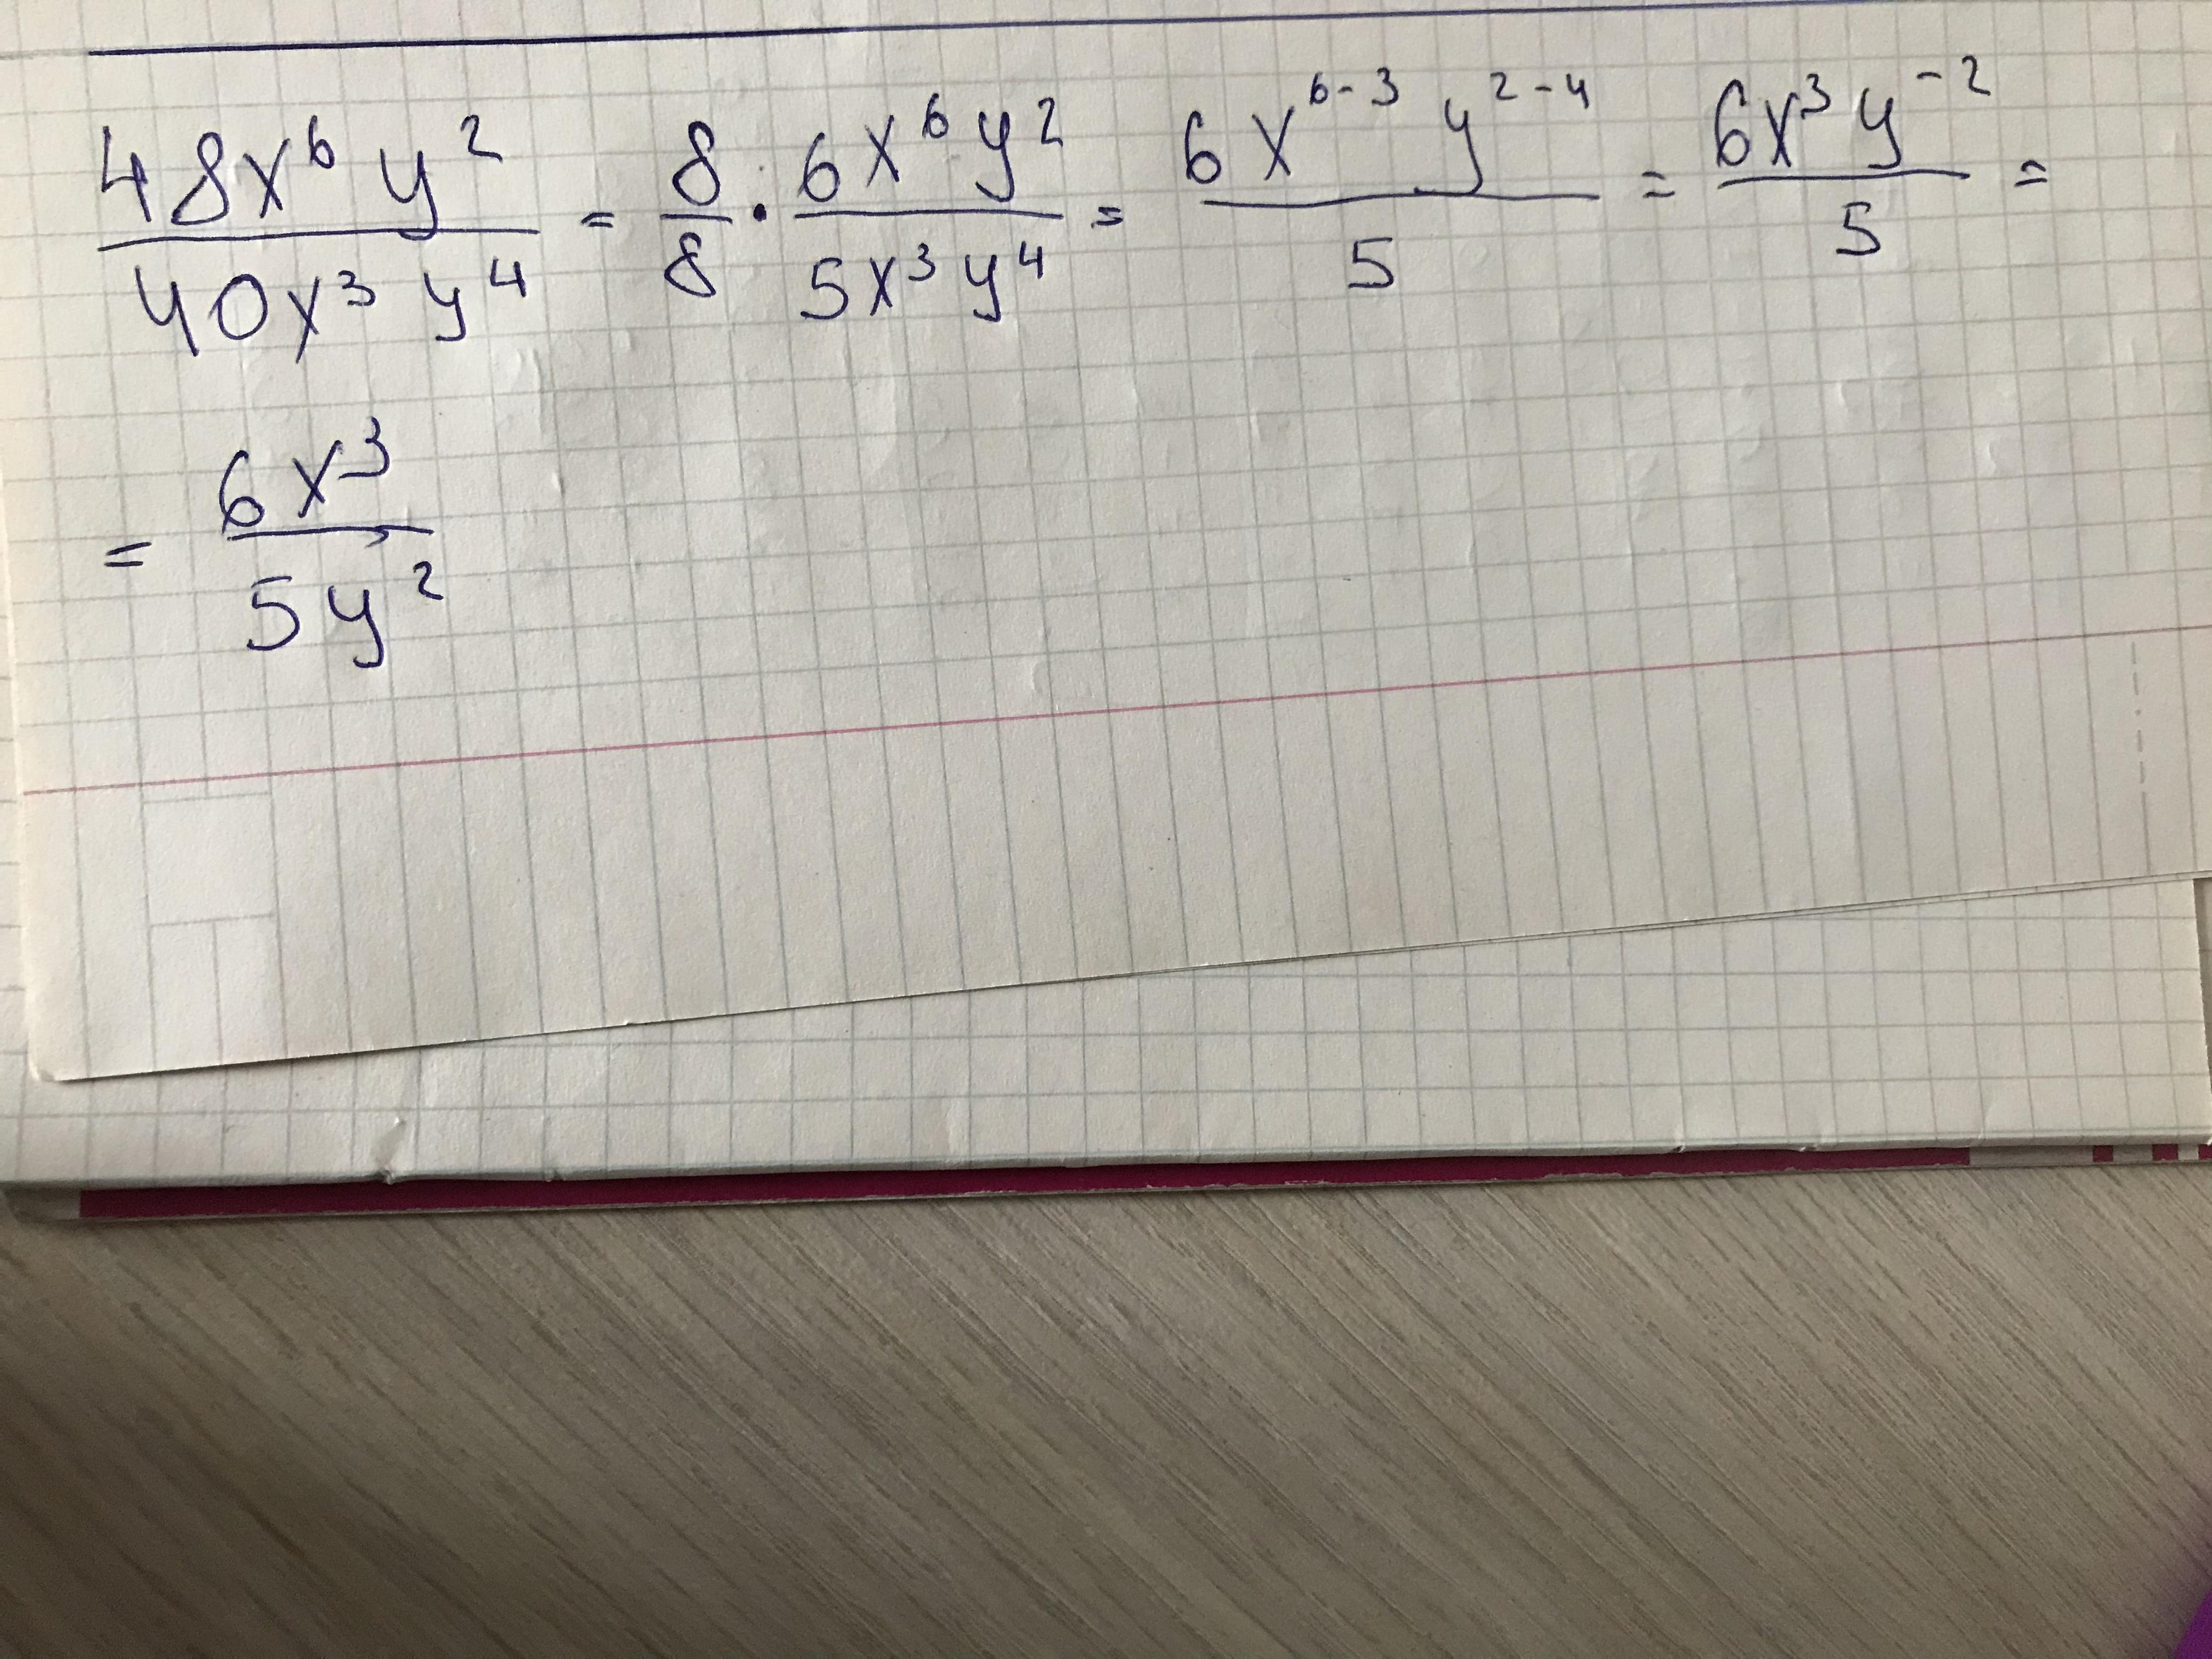 48x⁶y²/40x³y⁴ = 8/8 · 6x⁶y²/5x³y⁴ = 6x⁶⁻³y²⁻⁴/5 = 6x³y⁻²/5 =
= 6x³/5y²